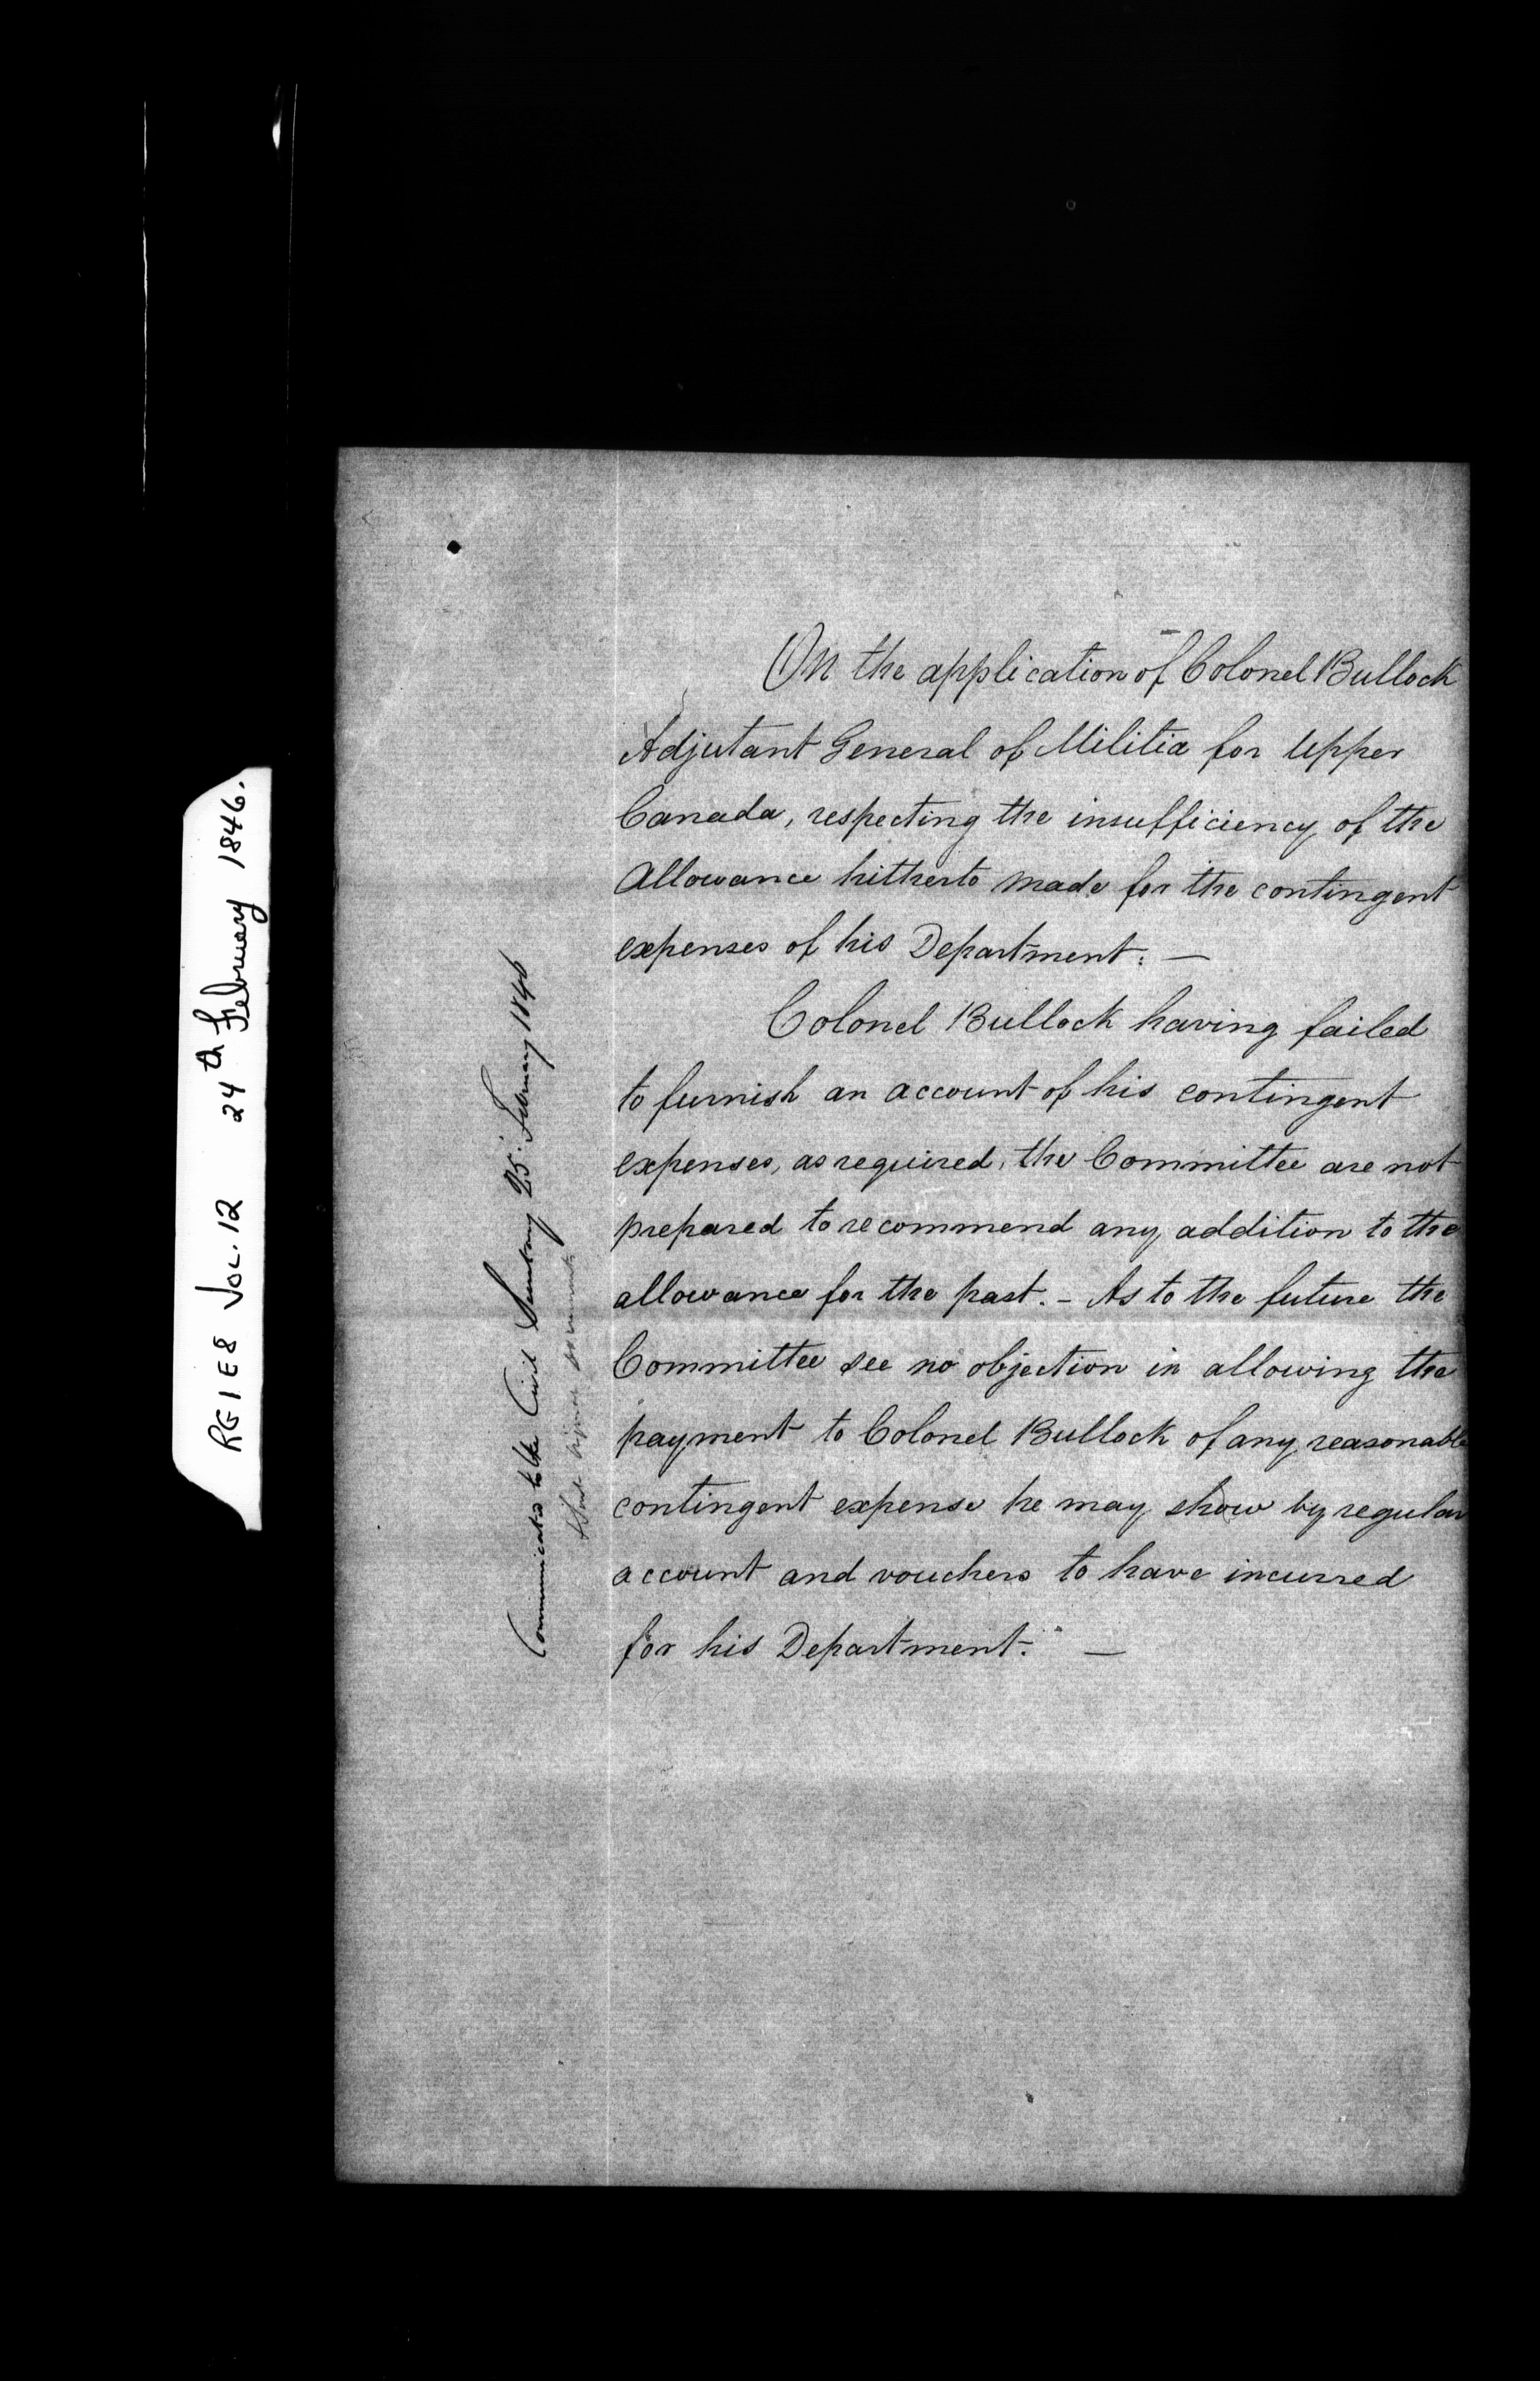 RG1E8 VOL.12 24th February 1846.
Communicated to the Civil Secretary 25. February 1846
On the application of Colonel Bullock
Adjutant General of Militia for Upper
Canada, respecting the insufficiency of the
Allowance hitherto made for the contingent
expenses of his Department: —
Colonel Bullock having failed
to furnish an account of his contingent
expenses, as required, the Committee are not
prepared to recommend any addition to the
allowance for the past. – As to the future the
Committee see no objection in allowing the
payment to Colonel Bullock of any reasonable
contingent expense he may show by regular
account and vouchers to have incurred
for his Department." —